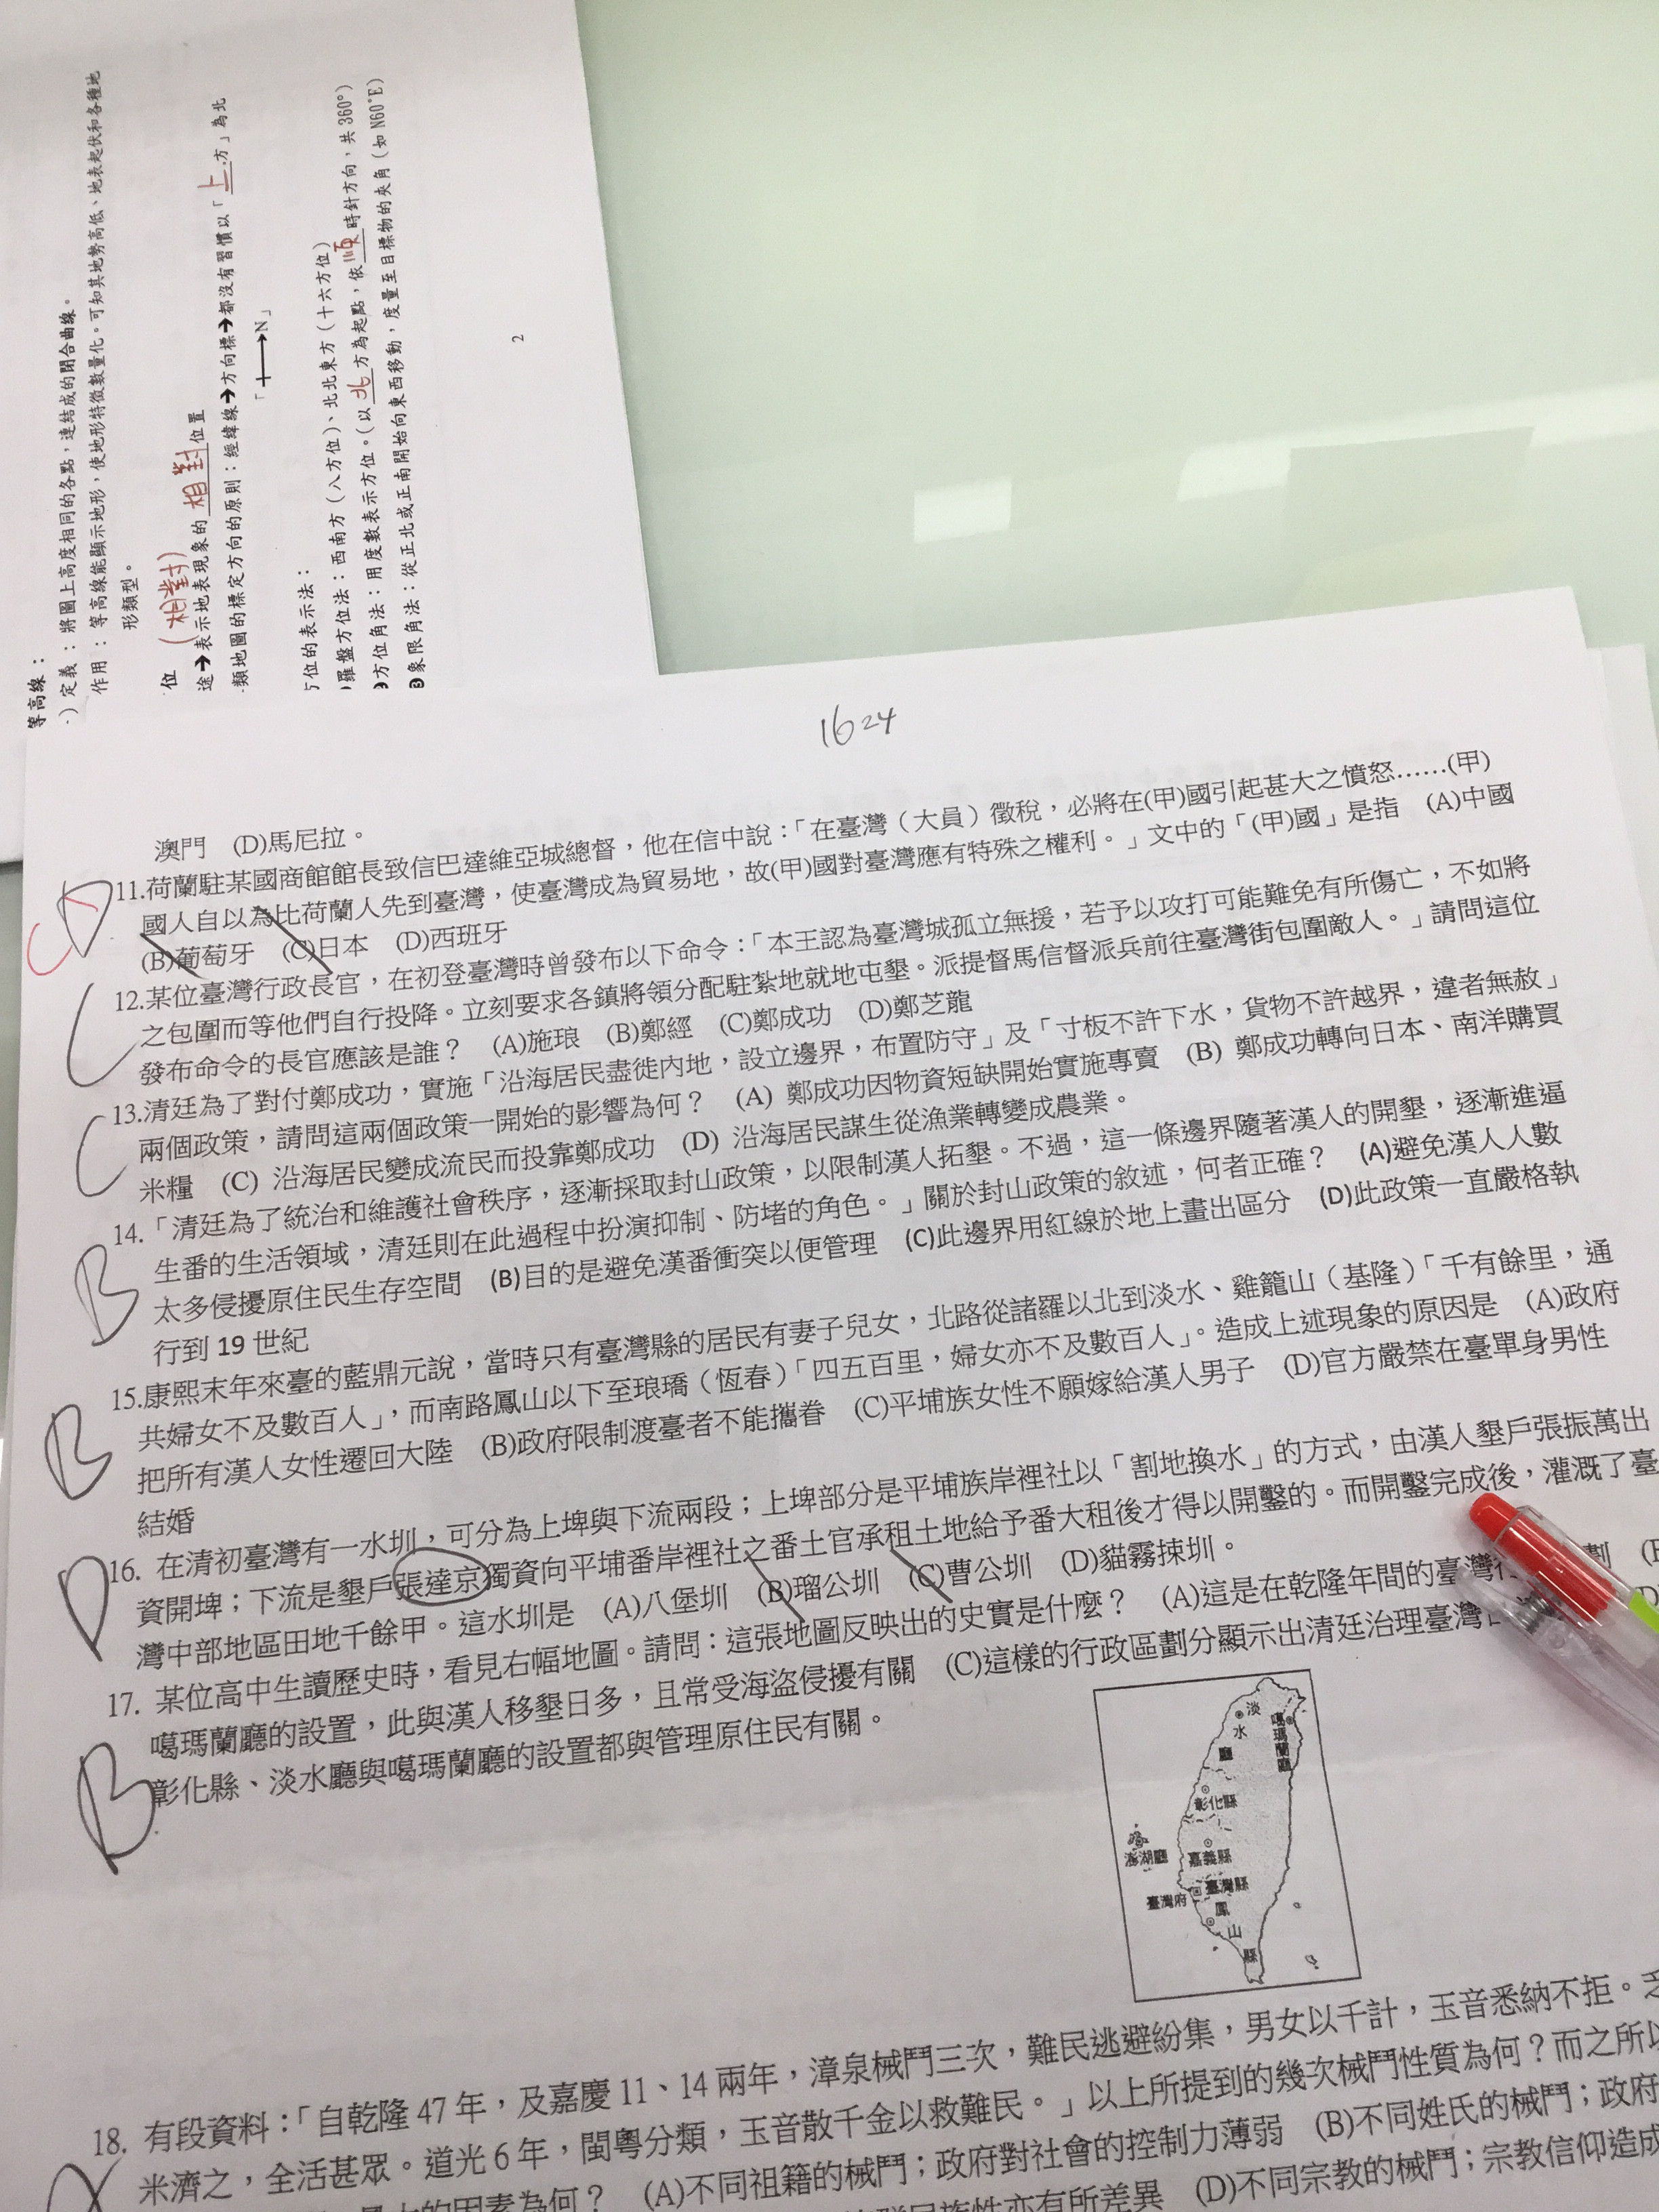 等高線：
定義：將圖上高度相同的各點，連結成的閉合曲線。
作用：等高線能顯示地形，使地形特徵數量化。可知其地勢高低、地表起伏和各種地
形類型。
位 (相對)
途➔表示地表現象的 相對 位置
類地圖的標定方向的原則：經緯線➔方向標➔都沒有習慣以「上方」為北
N」
位的表示法：
羅盤方位法：西南方（八方位）、北北東方（十六方位）
方位角法：用度數表示方位。（以 北 方為起點，依 順 時針方向，共360°）
❸象限角法：從正北或正南開始向東西移動，度量至目標物的夾角（如N60°E）
2
1624
澳門 (D)馬尼拉。
C D 11.荷蘭駐某國商館館長致信巴達維亞城總督，他在信中說：「在臺灣（大員）徵稅，必將在(甲)國引起甚大之憤怒……(甲)
國人自以為比荷蘭人先到臺灣，使臺灣成為貿易地，故(甲)國對臺灣應有特殊之權利。」文中的「(甲)國」是指 (A)中國
(B)葡萄牙 (C)日本 (D)西班牙
C 12.某位臺灣行政長官，在初登臺灣時曾發布以下命令：「本王認為臺灣城孤立無援，若予以攻打可能難免有所傷亡，不如將
之包圍而等他們自行投降。立刻要求各鎮將領分配駐紮地就地屯墾。派提督馬信督派兵前往臺灣街包圍敵人。」請問這位
發布命令的長官應該是誰？ (A)施琅 (B)鄭經 (C)鄭成功 (D)鄭芝龍
C 13.清廷為了對付鄭成功，實施「沿海居民盡徙內地，設立邊界，布置防守」及「寸板不許下水，貨物不許越界，違者無赦」
兩個政策，請問這兩個政策一開始的影響為何？ (A) 鄭成功因物資短缺開始實施專賣 (B) 鄭成功轉向日本、南洋購買
米糧 (C) 沿海居民變成流民而投靠鄭成功 (D) 沿海居民謀生從漁業轉變成農業。
B 14.「清廷為了統治和維護社會秩序，逐漸採取封山政策，以限制漢人拓墾。不過，這一條邊界隨著漢人的開墾，逐漸進逼
生番的生活領域，清廷則在此過程中扮演抑制、防堵的角色。」關於封山政策的敘述，何者正確？ (A)避免漢人人數
太多侵擾原住民生存空間 (B)目的是避免漢番衝突以便管理 (C)此邊界用紅線於地上畫出區分 (D)此政策一直嚴格執
行到19世紀
B 15.康熙末年來臺的藍鼎元說，當時只有臺灣縣的居民有妻子兒女，北路從諸羅以北到淡水、雞籠山（基隆）「千有餘里，通
共婦女不及數百人」，而南路鳳山以下至琅璚（恆春）「四五百里，婦女亦不及數百人」。造成上述現象的原因是 (A)政府
把所有漢人女性遷回大陸 (B)政府限制渡臺者不能攜眷 (C)平埔族女性不願嫁給漢人男子 (D)官方嚴禁在臺單身男性
結婚
D 16. 在清初臺灣有一水圳，可分為上埤與下流兩段；上埤部分是平埔族岸裡社以「割地換水」的方式，由漢人墾戶張振萬出
資開埤；下流是墾戶張達京獨資向平埔番岸裡社之番土官承租土地給予番大租後才得以開鑿的。而開鑿完成後，灌溉了臺
灣中部地區田地千餘甲。這水圳是 (A)八堡圳 (B)瑠公圳 (C)曹公圳 (D)貓霧捒圳。
B 17. 某位高中生讀歷史時，看見右幅地圖。請問：這張地圖反映出的史實是什麼？ (A)這是在乾隆年間的臺灣行 劃
噶瑪蘭廳的設置，此與漢人移墾日多，且常受海盜侵擾有關 (C)這樣的行政區劃分顯示出清廷治理臺灣
彰化縣、淡水廳與噶瑪蘭廳的設置都與管理原住民有關。
淡水廳
噶瑪蘭廳
彰化縣
澎湖廳
嘉義縣
臺灣府
臺灣縣
鳳山縣
18. 有段資料：「自乾隆47年，及嘉慶11、14兩年，漳泉械鬥三次，難民逃避紛集，男女以千計，玉音悉納不拒。
米濟之，全活甚眾。道光6年，閩粵分類，玉音散千金以救難民。」以上所提到的幾次械鬥性質為何？而之所以
的因素為何？ (A)不同祖籍的械鬥；政府對社會的控制力薄弱 (B)不同姓氏的械鬥；政府
民族性亦有所差異 (D)不同宗教的械鬥；宗教信仰造成